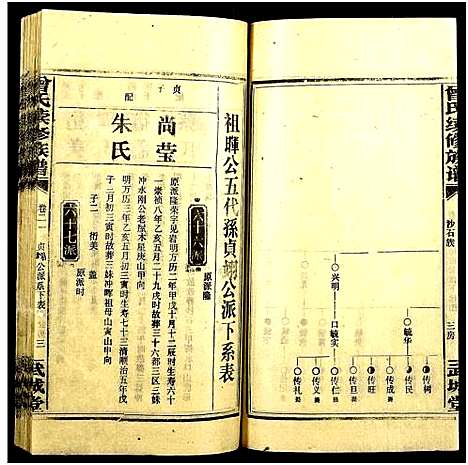 曾氏续修族谱
沙石族
三房
武城堂
兴明
毓华
口毓实
传树
传民
传成
传旺
传旦
传仁
传义
传礼
祖晖公五代孙贞翊公派下系表
六十六派
原派隆
贞
子
配
尚莹
朱氏
原派隆荣字见岩明万历二年甲戌十月十二辰时生寿六十
一崇祯八年乙亥五月二十九戌时故葬三十六都三区三妹
冲水刚公老屋木星庚山甲向
明万历三年乙亥五月初三寅时生寿七十三清顺治五年戊
子二月初三寅时故葬三妹冲晖祖母山寅山申向
子二 衍美 盖
六十七派
原派时
曾氏续修族谱
卷二二
贞翊公派系下表
三
武城堂